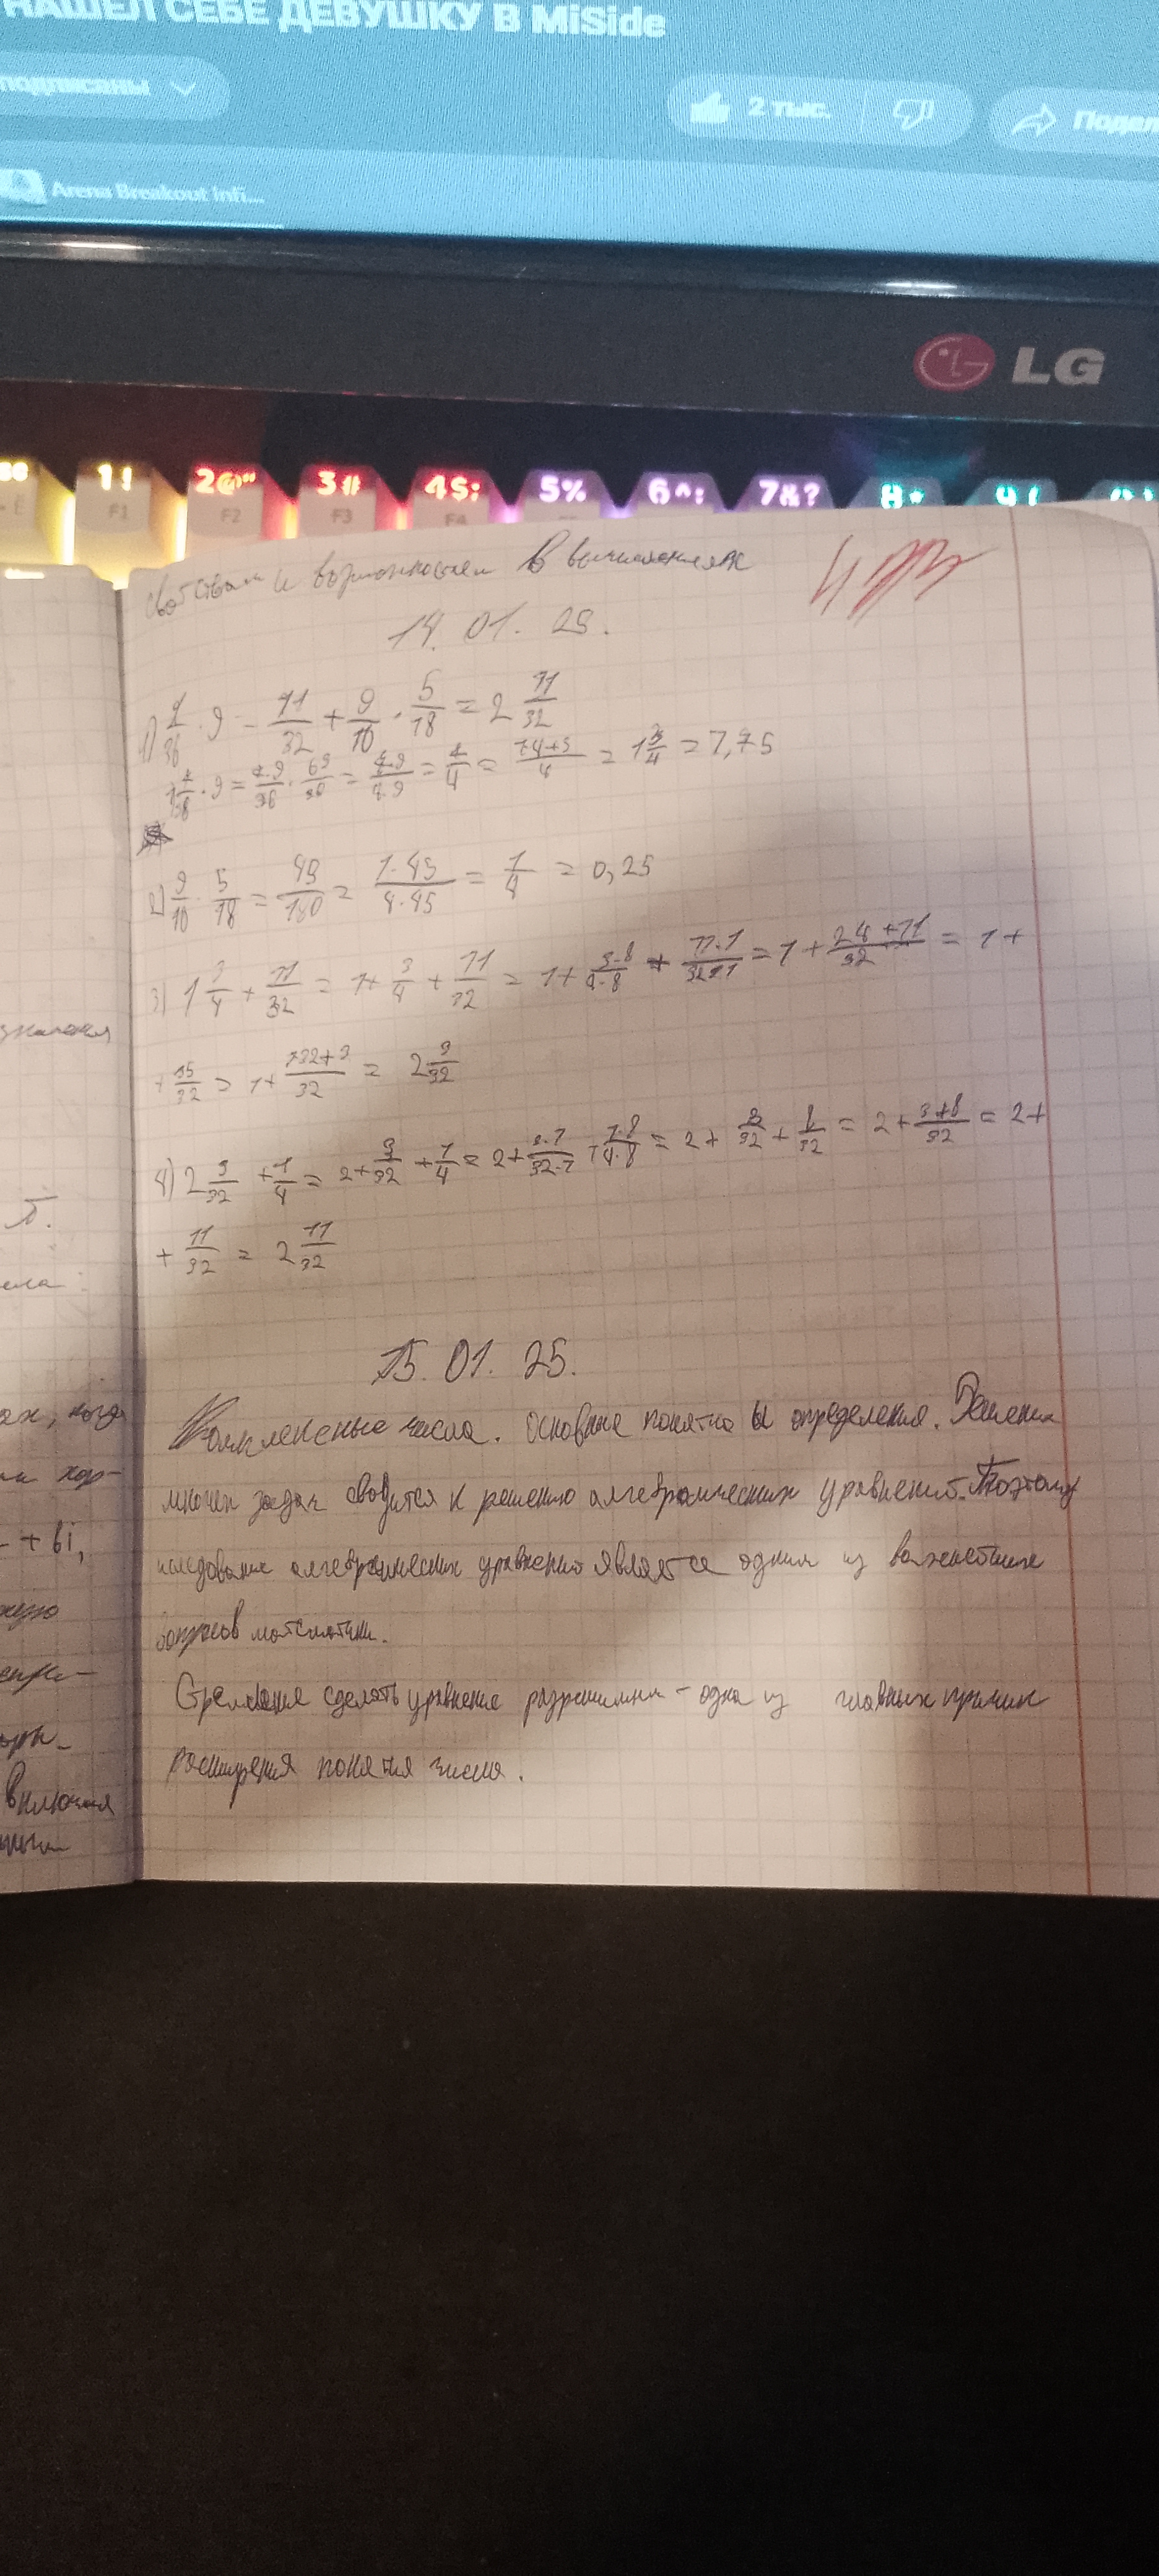 НАШЁЛ СЕБЕ ДЕВУШКУ В MiSide
подписаны
2 тыс.
Arena Breakout Infi...
LG
1! 2@" 3# 4$; 5% 6^: 7&? 8*
F1 F2 F3 F4
и в вычислениях
14. 01. 25.
1) · 9 - 11/32 + 9/10 · 5/18 = 2 11/32
= 7/4 = = 1 3/4 = 1,75
2) 9/10 · 5/18 = 45/180 = 1·45/4·45 = 1/4 = 0,25
3) 1 3/4 + 11/32 = 1+ 3/4 + 11/32 = 1+ 3·8/4·8 + 11·1/32·1 = 1 + 24+11/32 = 1+
+ 35/32 = 1+ 132+3/32 = 2 3/32
4) 2 3/32 + 1/4 = 2+ 3/32 + 1/4 = 2+ 3·1/32·1 + 1·8/4·8 = 2+ 3/32 + 8/32 = 2+ 3+8/32 = 2+
+ 11/32 = 2 11/32
15. 01. 25.
Комплексные числа. Основные понятия и определения. Решения
многих задач сводится к решению алгебраических уравнений. Поэтому
исследование алгебраических уравнений является одним из важнейших
вопросов математики.
Стремление сделать уравнение разрешимыми - одна из главных причин
расширения понятия числа.
+ bi,
включая